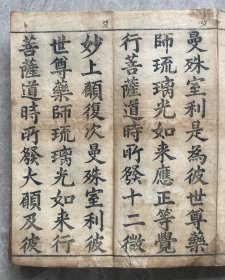 曼殊室利是為彼世尊藥
師琉璃光如来應正等覺
行菩薩道時所發十二微
妙上願復次曼殊室利彼
世尊藥師琉璃光如来行
菩薩道時所發大願及彼